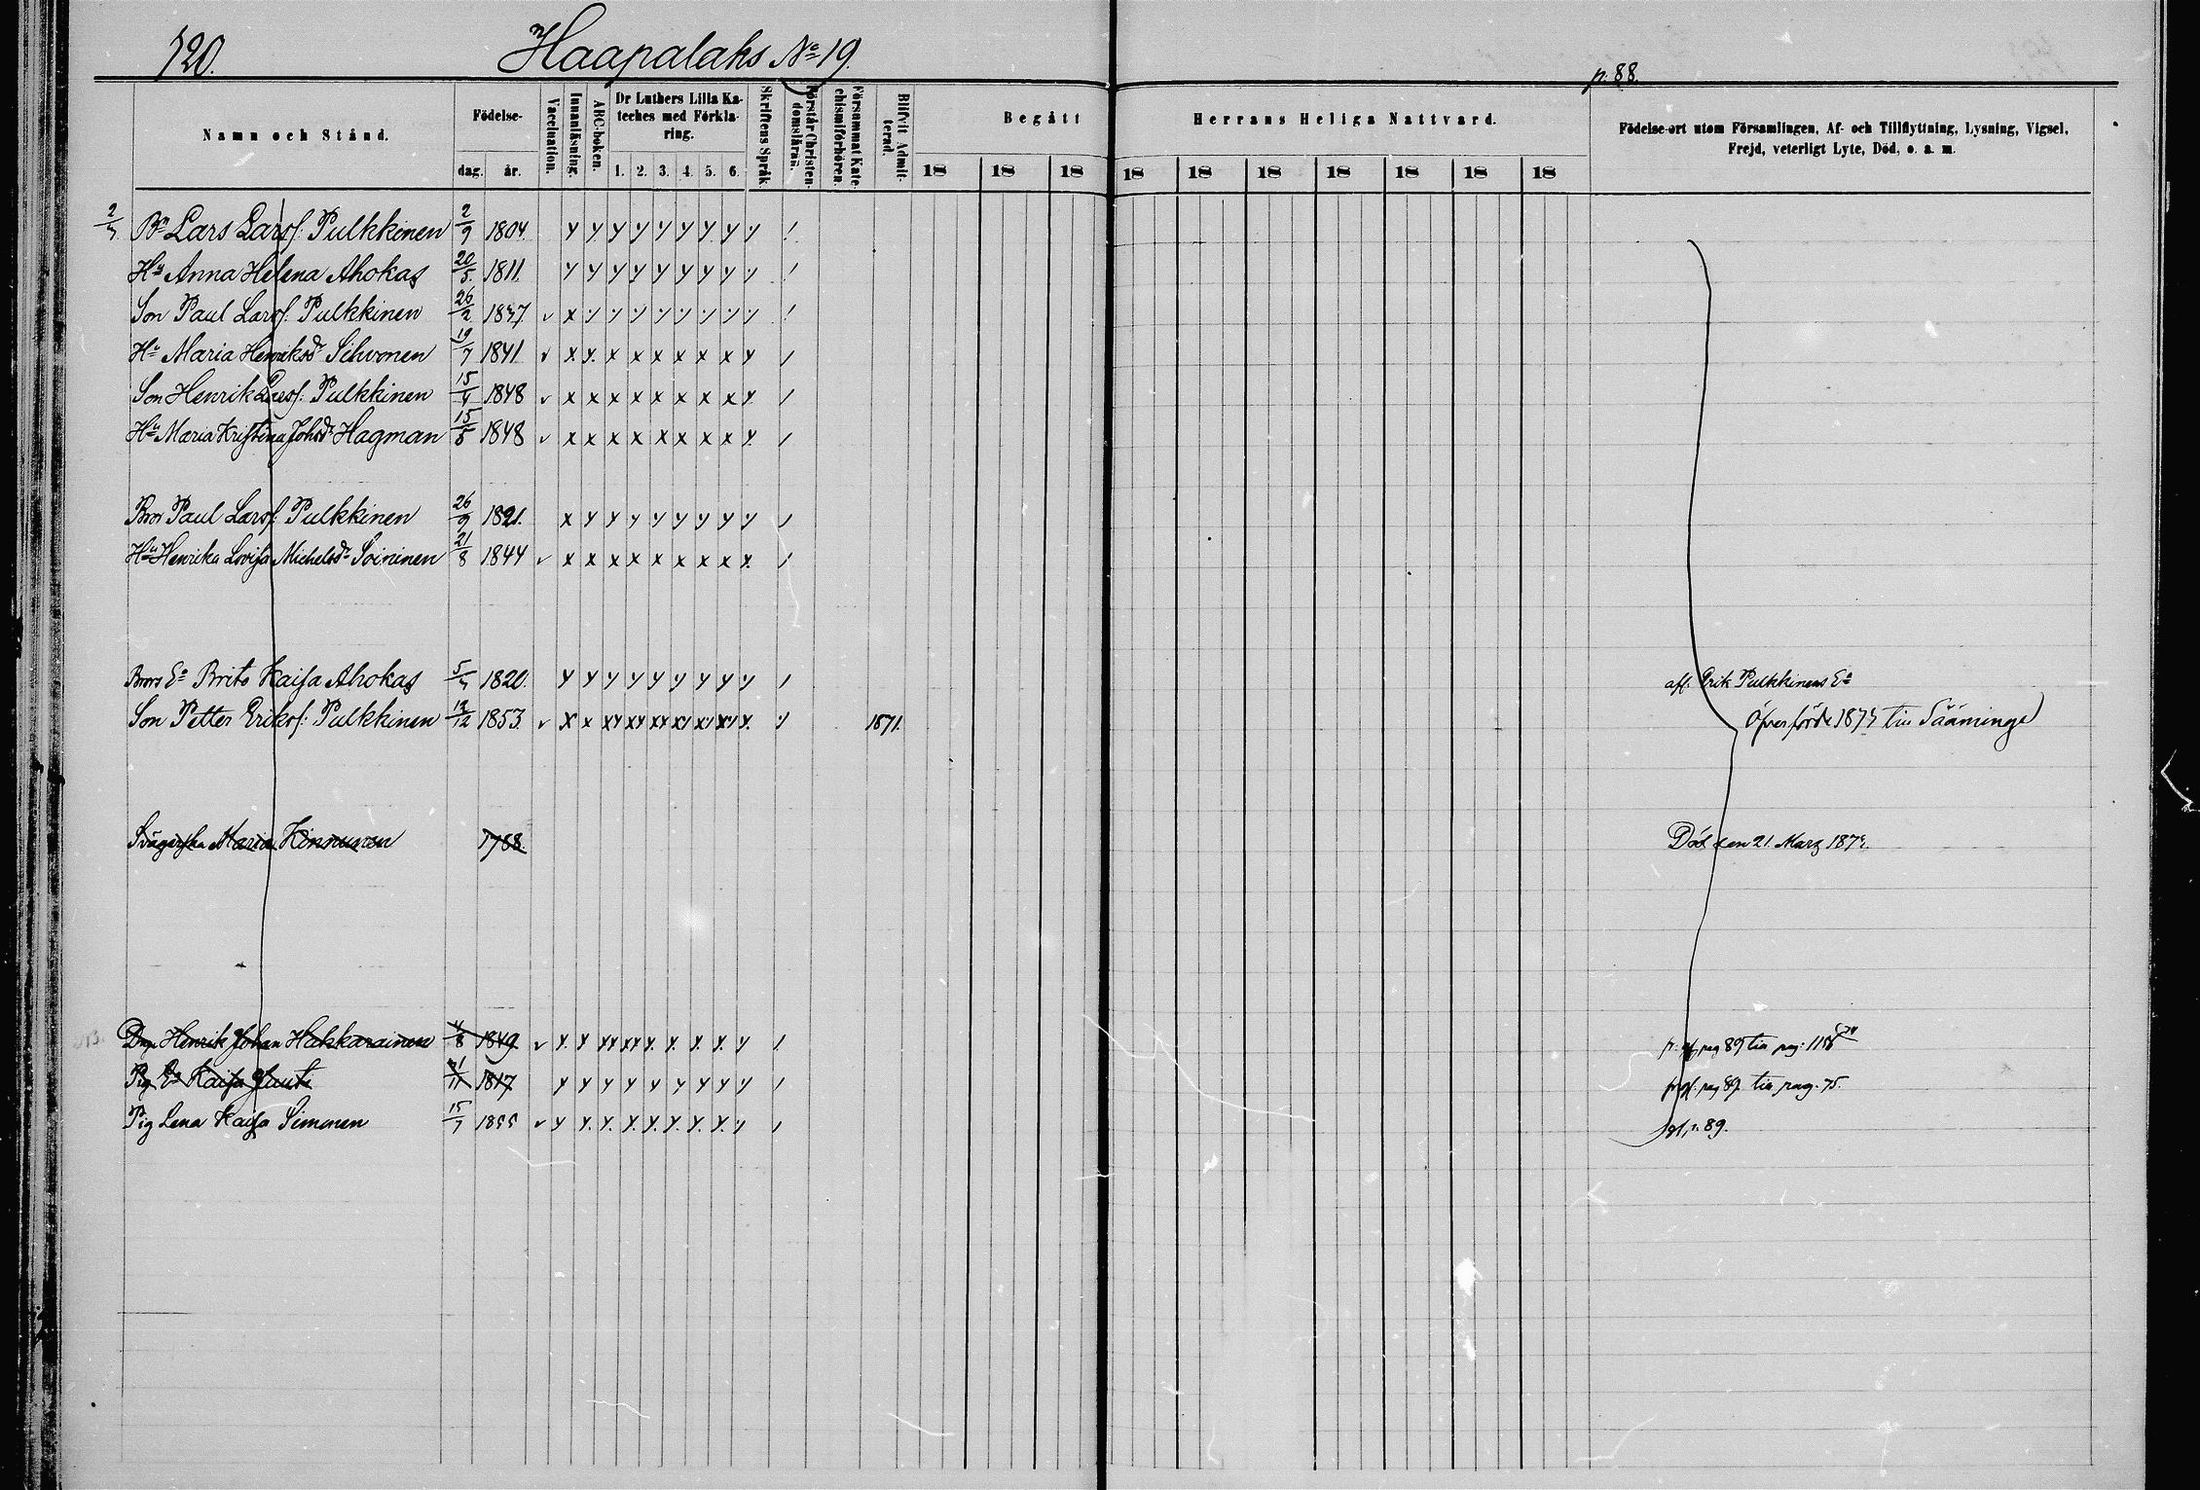 720. Haapalaks No 19.
p. 88.
Namn och Stånd. Födelse- dag. år. Vaccination. Innanläsning. ABC-boken. Dr Luthers Lilla Kateches med Förklaring. 1. 2. 3. 4. 5. 6. Skriftens Språk Förstår Christendomslåran. Försummat Katechismiförhören. Blifvit Admitterad. Begått Herrans Heliga Nattvard. 18 18 18 18 18 18 18 18 18 18 Födelse-ort utom Församlingen, Af- och Tillflyttning, Lysning, Vigsel, Frejd, veterligt Lyte, Död, o. a. m.
Bn Lars Larsf: Pulkkinen 2/9 1804
Hu Anna Helena Ahokas 20/5 1811
Son Paul Larsf: Pulkkinen 26/2 1837
Hu Maria Henriksdr Sihvonen 19/7 1841
Son Henrik Larsf: Pulkkinen 15/4 1848
Hu Maria Kristina Johsdr Hagman 15/5 1848
Bror Paul Larsf: Pulkkinen 26/9 1821.
Hu Henrika Lovisa Michelsdr Soininen 21/8 1844
Brors Ea Brita Kaisa Ahokas 1820. aff. Erik Pulkkinens Ea
Son Petter Eriksf: Pulkkinen 12/12 1853 1871. Öfverförde till Sääminge
Svägerska Maria Kinnunen 1788. Död den 21 Mars
Drg Henrik Johan Hakkarainen 1849 pag 89 till pag:
Pig Ea Kaisa 1817 pag 89 till pag. 75.
Pig Lena Kaisa Simonen 15/7 1855 p. 89.